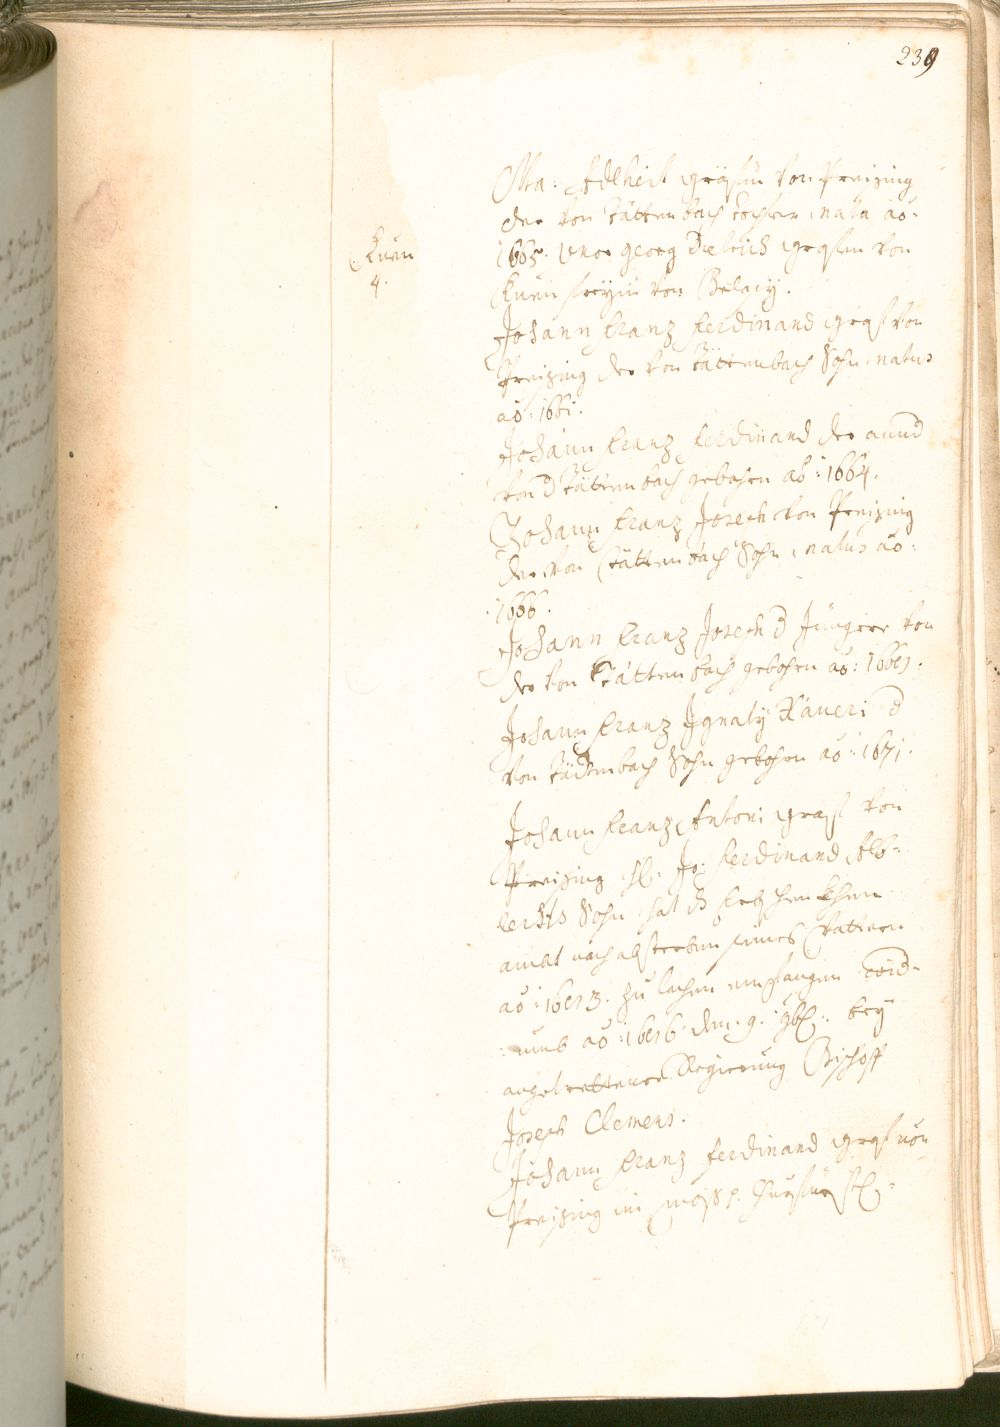 239
Ma: Adlheit gräfin von Preising
der von Tättenbach Tochter, nata ao:
1665. Uxor Georg Dietrich grafen von
Kuen freÿin von Belasÿ.
Kuen
4.
Johann Franz Ferdinand graf von
Preising der von Tättenbach Sohn, natus
ao: 1661.
Johann Franz Ferdinand der
von d Tättenbach gebohren ao: 1664.
Johann Franz Joseph von Preising
der von Tättenbach Sohn, natus ao:
1666.
Johann Franz Joseph d Jüngere von
der von Tättenbach gebohren ao:
Johann Franz Ignatÿ Xaueri d
von Tättenbach Sohn gebohren ao: 1671.
Johann Franz Antoni graf von
Preising H: Jo: Ferdinand Alb-
Sohn hat Erbschenkhen
ambt nach absterben seines Vattern
ao: zu lechen empfangen
umb ao: den 9. beÿ
angetrettener Regierung Bischoff
Joseph Clemens.
Johann Franz Ferdinand graf von
Preising im